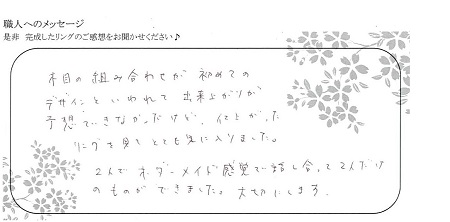 職人へのメッセージ
是非 完成したリングのご感想をお聞かせください♪
木目の組み合わせが 初めての
デザインといわれて 出来上がりが
予想できなかったけど、仕上がった
リングを見て とても気に入りました。
2人で オーダーメイド感覚で話し合って2人だけ
のものができました。大切にします。